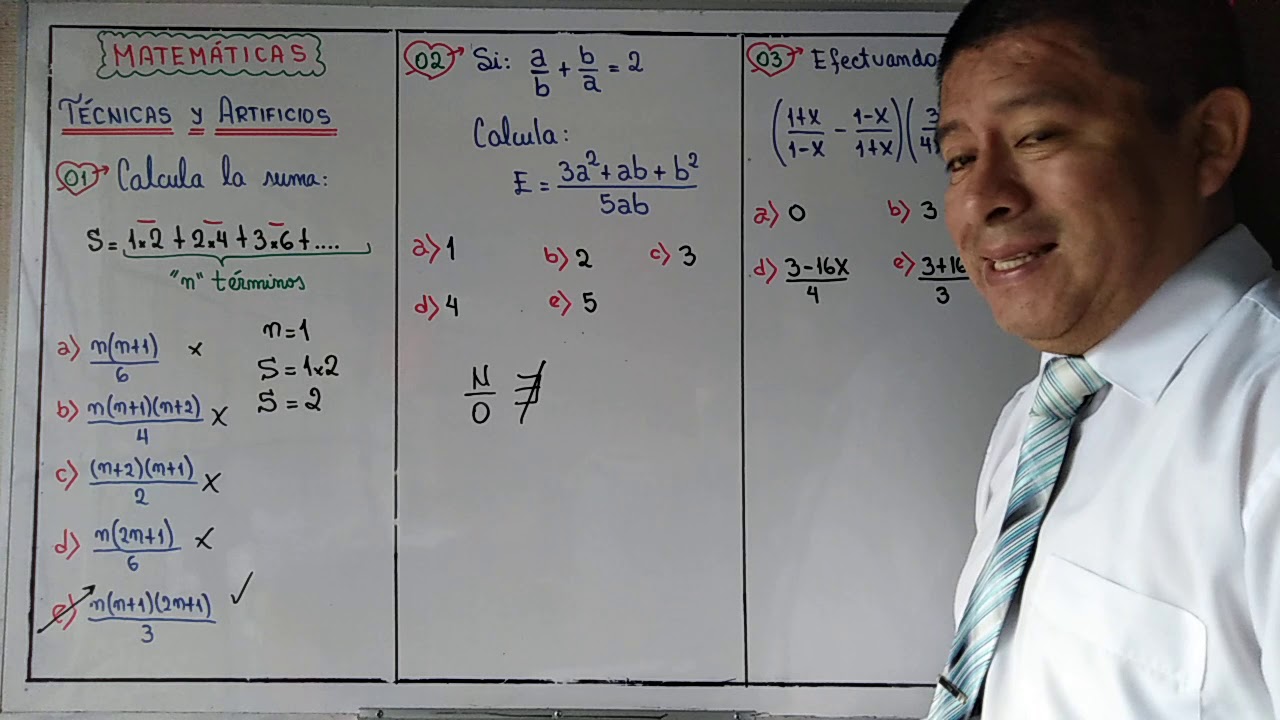 MATEMÁTICAS
TÉCNICAS y ARTIFICIOS
01 Calcula la suma:
S = 1x2 + 2x4 + 3x6 + ....
"n" términos
a) n(n+1)/6 x
b) n(n+1)(n+2)/4 x
c) (n+2)(n+1)/2 x
d) n(2n+1)/6 x
e) n(n+1)(2n+1)/3 ✓
n=1
S = 1x2
S = 2
02 Si: a/b + b/a = 2
Calcula:
E = (3a²+ab+b²)/5ab
a) 1 b) 2 c) 3
d) 4 e) 5
N/0 ∄
03 Efectuando
((1+x)/(1-x) - (1-x)/(1+x))(3/4
a) 0 b) 3
d) (3-16x)/4 e) (3+16/3